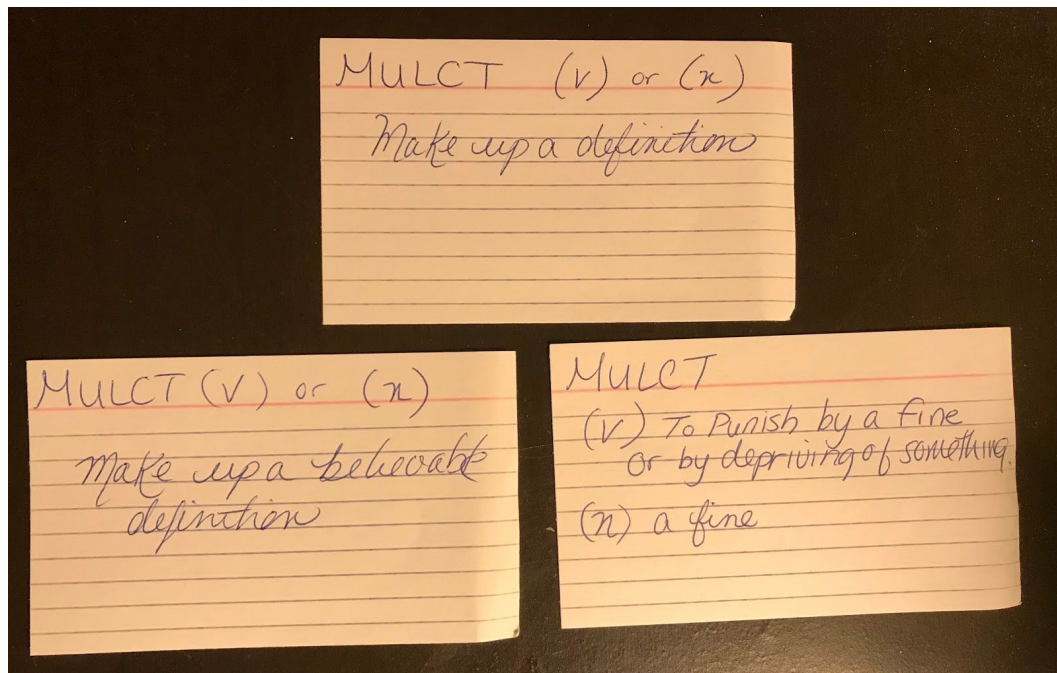 MULCT (v) or (n)
Make up a definition
MULCT (V) or (n)
Make up a believable
definition
MULCT
(V) To Punish by a fine
or by depriving of something.
(n) a fine